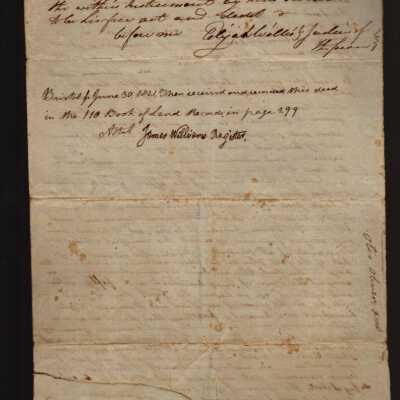 the within instrument by
to be his free act and deed
before me Elijah Willis Justice of
the peace
Bristol ss June 30 1821, Then received and recorded this deed
in the 110 Book of Land Records in page 299
Attest James Williams Register.